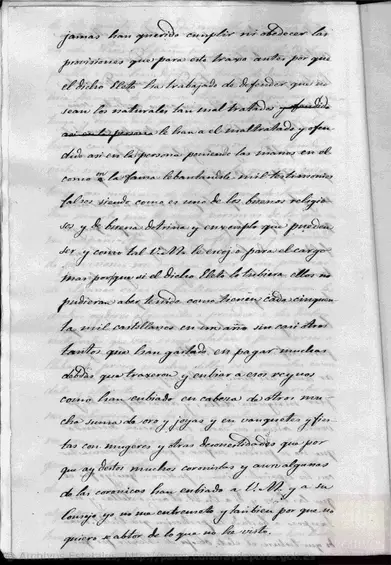 jamas han querido cumplir ni obedecer las
provisiones que para esto traxo antes por que
el dicho Eleto ha trabajado de defender que no
sean los naturales tan mal tratados y ofendido
asi en la persona le han a el maltratado y ofen
dido asi en la persona poniendo las manos en el
como en la fama lebantandole mil testimonios
falsos siendo como es uno de los buenos religio
sos y de buena dotrina y enxemplo que pueden
ser y como tal V. M. le escojo para el cargo
mas porque si el dicho Eleto lo tubiera ellos no
pudieran aber tenido como tienen cada cinquen
ta mil castellanos en un año sin casi otros
tantos que han gastado en pagar muchas
debdas que traxeron y enbiar a esos reynos
como han enbiado en cabeza de otros mu
cha suma de oro y joyas y en vanquetes y fies
tas con mugeres y otras desonestidades que por
que ay destos muchos coronistas y aun algunas
de las coronicas han enbiado a V. M. y a su
Consejo yo no me entremeto y tanbien por que no
quiero ser abtor de lo que no he visto.